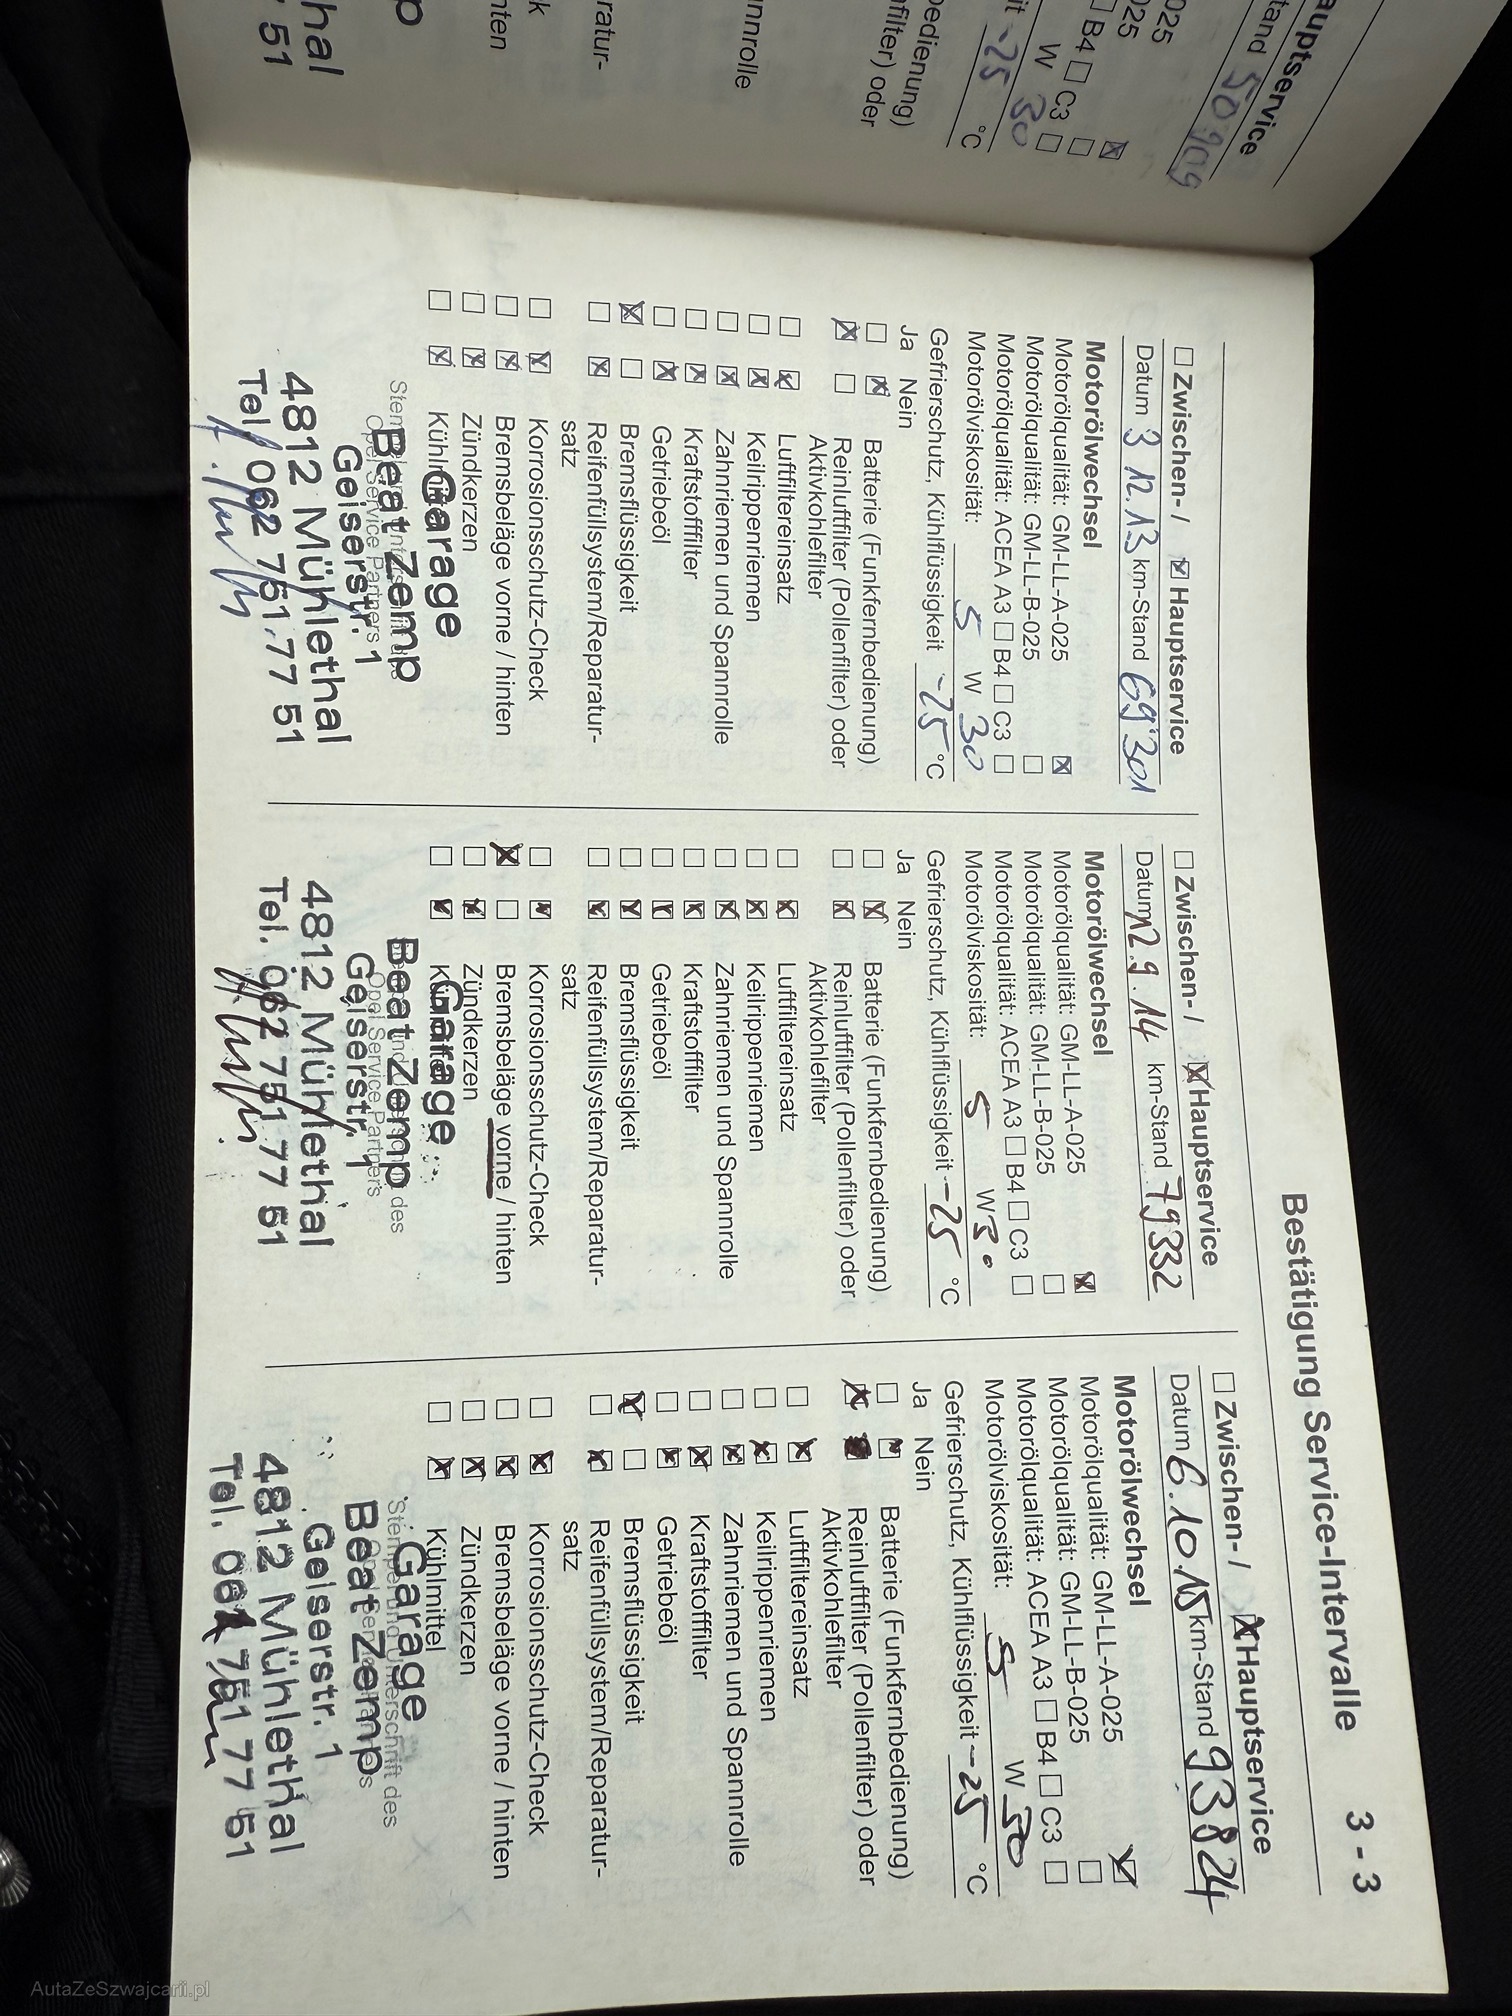 auptservice
tand 50909
025
025
B4 C3
W 30
it -25 °C
bedienung)
filter) oder
nnrolle
ratur-
k
nten
p
hal
51
Bestätigung Service-Intervalle 3 - 3
Zwischen- / Hauptservice
Datum 3 12.13 km-Stand 69'301
Motorölwechsel
Motorölqualität: GM-LL-A-025
Motorölqualität: GM-LL-B-025
Motorölqualität: ACEA A3 B4 C3
Motorölviskosität: 5 W 30
Gefrierschutz, Kühlflüssigkeit -25 °C
Ja Nein
Batterie (Funkfernbedienung)
Reinluftfilter (Pollenfilter) oder
Aktivkohlefilter
Luftfiltereinsatz
Keilrippenriemen
Zahnriemen und Spannrolle
Kraftstofffilter
Getriebeöl
Bremsflüssigkeit
Reifenfüllsystem/Reparatur-
satz
Korrosionsschutz-Check
Bremsbeläge vorne / hinten
Zündkerzen
Garage
Beat Zemp
Opel Service Partners
Geiserstr. 1
4812 Mühlethal
Tel. 062 751 77 51
Zwischen- / Hauptservice
Datum 12.9.14 km-Stand 79332
Motorölwechsel
Motorölqualität: GM-LL-A-025
Motorölqualität: GM-LL-B-025
Motorölqualität: ACEA A3 B4 C3
Motorölviskosität: 5 W 30
Gefrierschutz, Kühlflüssigkeit -25 °C
Ja Nein
Batterie (Funkfernbedienung)
Reinluftfilter (Pollenfilter) oder
Aktivkohlefilter
Luftfiltereinsatz
Keilrippenriemen
Zahnriemen und Spannrolle
Kraftstofffilter
Getriebeöl
Bremsflüssigkeit
Reifenfüllsystem/Reparatur-
satz
Korrosionsschutz-Check
Bremsbeläge vorne / hinten
Zündkerzen
Garage
Beat Zemp
des
Opel Service Partners
Geiserstr. 1
4812 Mühlethal
Tel. 062 751 77 51
Zwischen- / Hauptservice
Datum 6.10.15 km-Stand 93824
Motorölwechsel
Motorölqualität: GM-LL-A-025
Motorölqualität: GM-LL-B-025
Motorölqualität: ACEA A3 B4 C3
Motorölviskosität: 5 W 30
Gefrierschutz, Kühlflüssigkeit -25 °C
Ja Nein
Batterie (Funkfernbedienung)
Reinluftfilter (Pollenfilter) oder
Aktivkohlefilter
Luftfiltereinsatz
Keilrippenriemen
Zahnriemen und Spannrolle
Kraftstofffilter
Getriebeöl
Bremsflüssigkeit
Reifenfüllsystem/Reparatur-
satz
Korrosionsschutz-Check
Bremsbeläge vorne / hinten
Zündkerzen
Kühlmittel
Garage
Stempel und Unterschrift des
Beat Zemp
Geiserstr. 1
4812 Mühlethal
Tel. 062 751 77 51
AutaZeSzwajcarii.pl